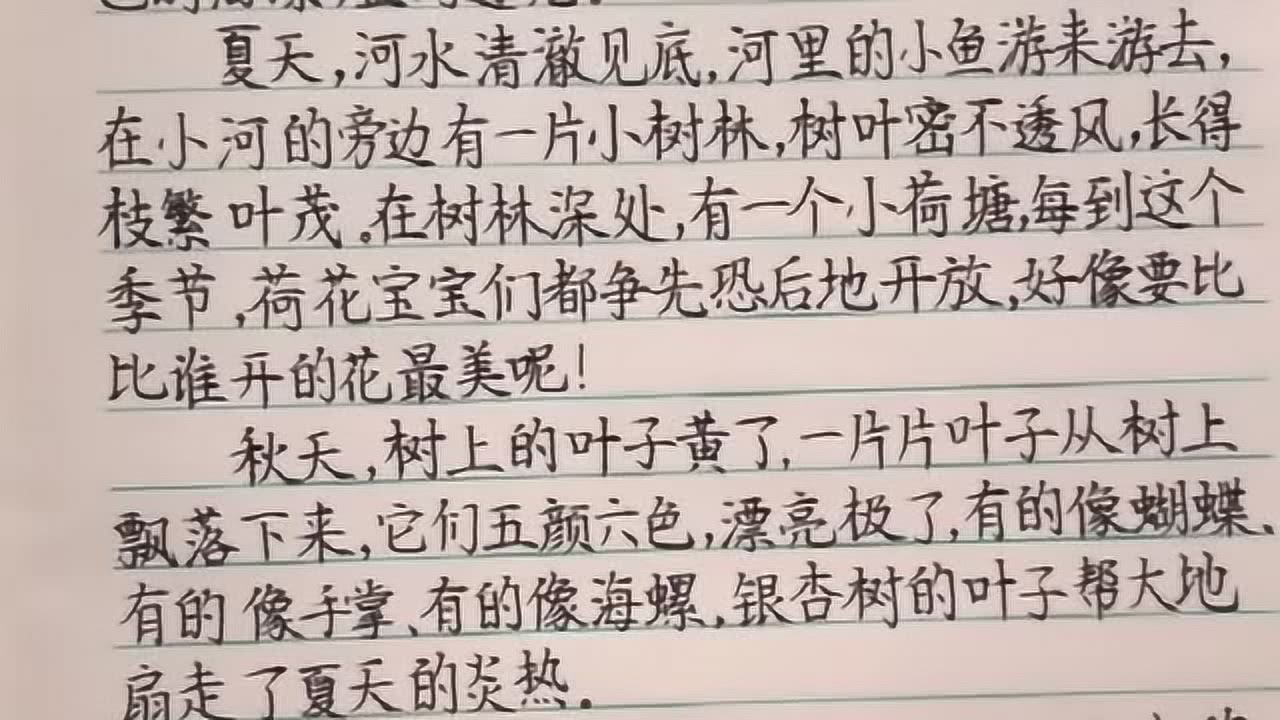 夏天,河水清澈见底,河里的小鱼游来游去,
在小河的旁边有一片小树林,树叶密不透风,长得
枝繁叶茂。在树林深处,有一个小荷塘,每到这个
季节,荷花宝宝们都争先恐后地开放,好像要比
比谁开的花最美呢!
秋天,树上的叶子黄了,一片片叶子从树上
飘落下来,它们五颜六色,漂亮极了,有的像蝴蝶、
有的像手掌、有的像海螺,银杏树的叶子帮大地
扇走了夏天的炎热。